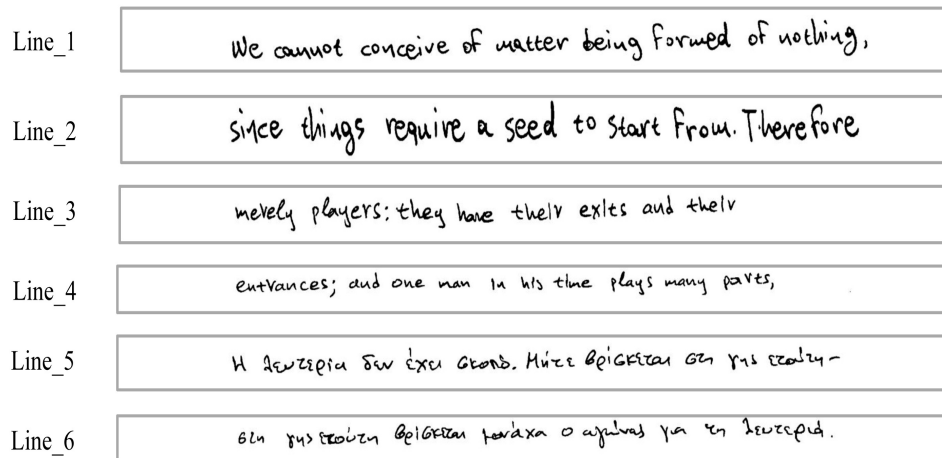 Line_1 We cannot conceive of matter being formed of nothing,
Line_2 since things require a seed to start from. Therefore
Line_3 merely players: they have their exits and their
Line_4 entrances; and one man in his time plays many parts,
Line_5 Η λευτερία δεν έχει σκοπό. Μήτε βρίσκεται στη γης ετούτη-
Line_6 στη γης ετούτη βρίσκεται μονάχα ο αγώνας για τη λευτεριά.